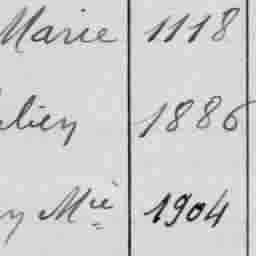 Marie 1118
lien 1886
y Mie 1904